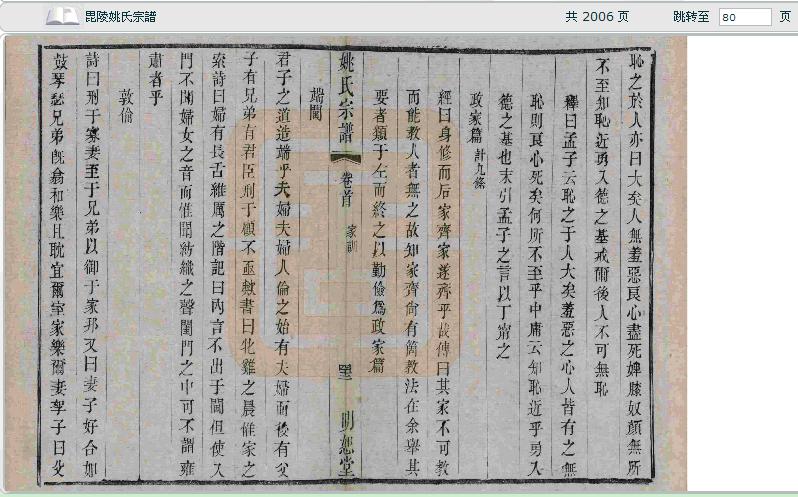 毘陵姚氏宗譜 共 2006 页 跳转至 80 页
恥之於人亦曰大矣人無羞惡良心盡死婢膝奴顏無所
不至知恥近勇入德之基戒爾後人不可無恥
釋曰孟子云恥之于人大矣羞惡之心人皆有之無
恥則良心死矣何所不至乎中庸云知恥近乎勇入
德之基也末引孟子之言以丁甯之
政家篇 計九條
經曰身修而后家齊家遂齊乎故傳曰其家不可教
而能教人者無之故知家齊尙有箇教法在余舉其
要者類于左而終之以勤儉爲政家篇
姚氏宗譜 卷首 家訓 明恕堂
端閫
君子之道造端乎夫婦夫婦人倫之始有夫婦而後有父
子有兄弟有君臣刑于顧不亟歟書曰牝雞之晨惟家之
索詩曰婦有長舌維厲之階記曰內言不出于閫但使入
門不聞婦女之音而惟聞紡織之聲閨門之中可不謂雍
肅者乎
敦倫
詩曰刑于寡妻至于兄弟以御于家邦又曰妻子好合如
鼓琴瑟兄弟既翕和樂且耽宜爾室家樂爾妻孥子曰父